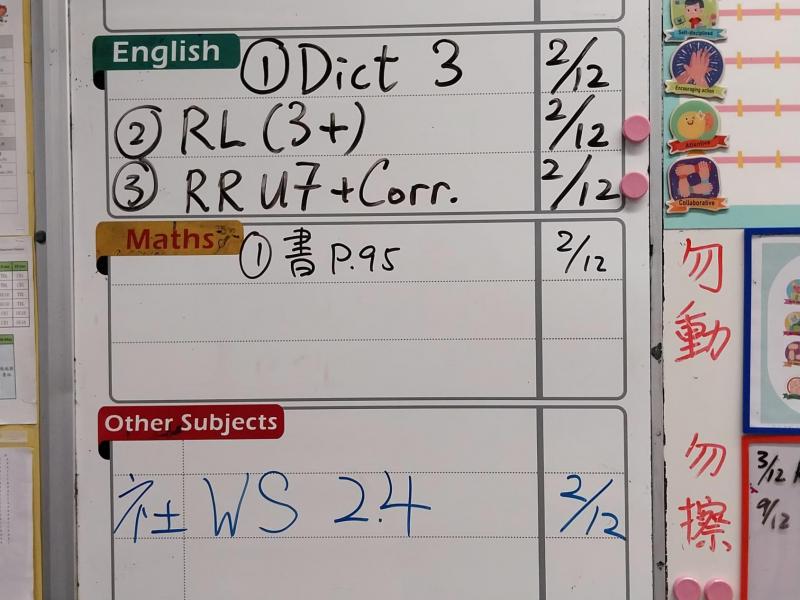 English
① Dict 3 2/12
② RL (3+) 2/12
③ RR U7 + Corr. 2/12
Maths
① 書 P.95 2/12
Other Subjects
社 WS 2.4 2/12
Self-disciplined
Encouraging action
Attentive
Collaborative
勿動
勿擦
3/12
9/12